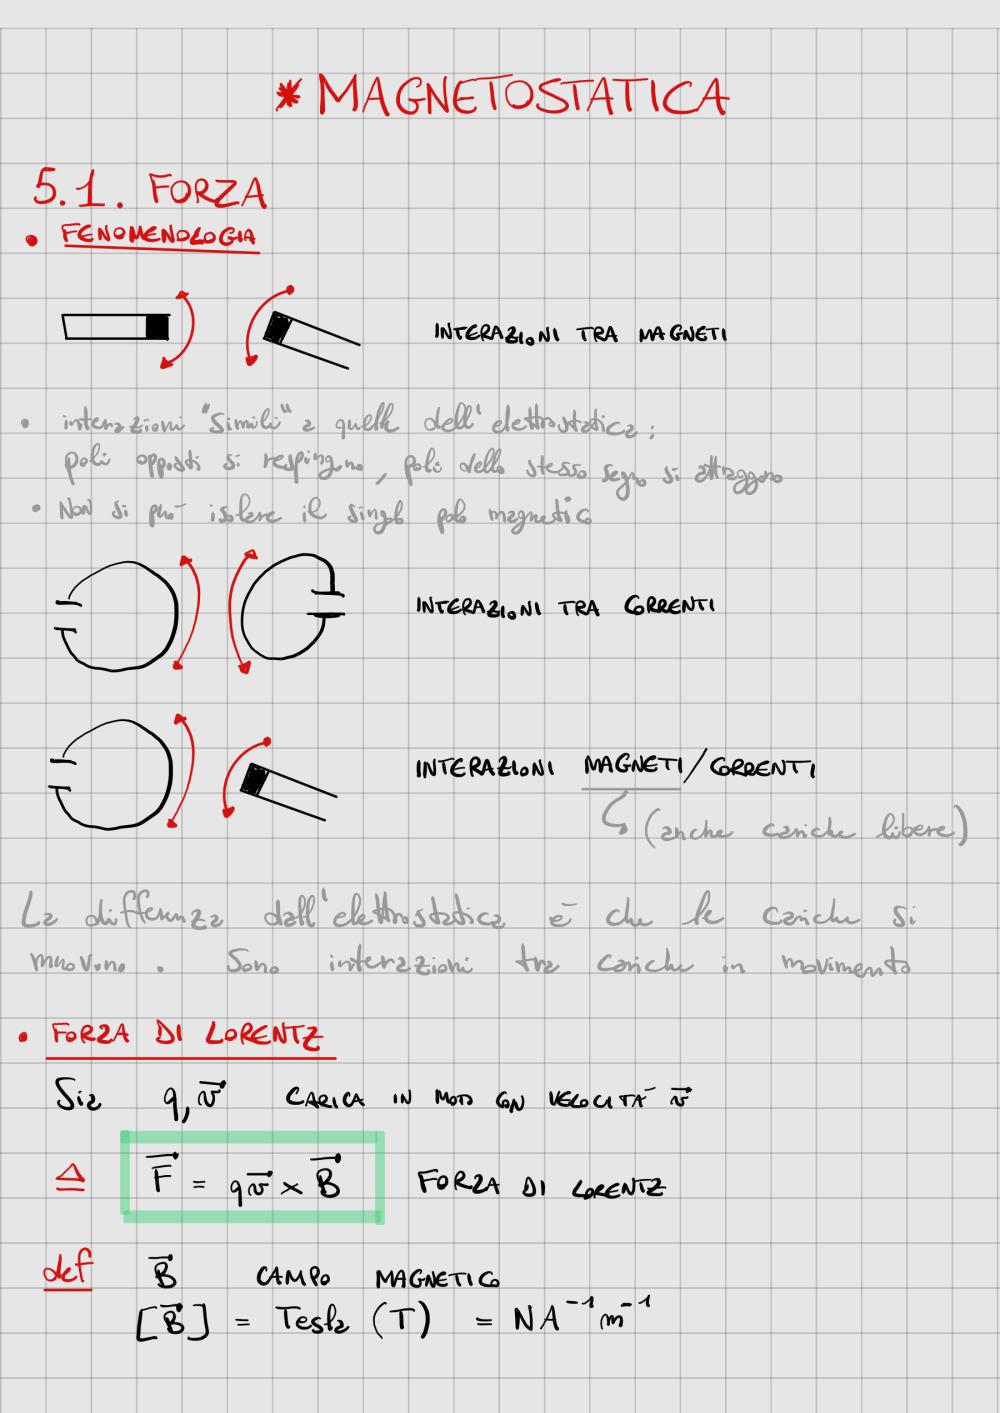 * MAGNETOSTATICA
5.1. FORZA
• FENOMENOLOGIA
INTERAZIONI TRA MAGNETI
• interazioni "simili" a quelle dell'elettrostatica:
poli opposti si respingono, poli dello stesso segno si attraggono
• Non si può isolare il singolo polo magnetico
INTERAZIONI TRA CORRENTI
INTERAZIONI MAGNETI/CORRENTI
(anche cariche libere)
La differenza dall'elettrostatica è che le cariche si
muovono. Sono interazioni tra cariche in movimento
• FORZA DI LORENTZ
Sia q, v⃗ CARICA IN MOTO CON VELOCITÀ v⃗
Δ F⃗ = qv⃗ × B⃗ FORZA DI LORENTZ
def B⃗ CAMPO MAGNETICO
[B⃗] = Tesla (T) = N A⁻¹ m⁻¹